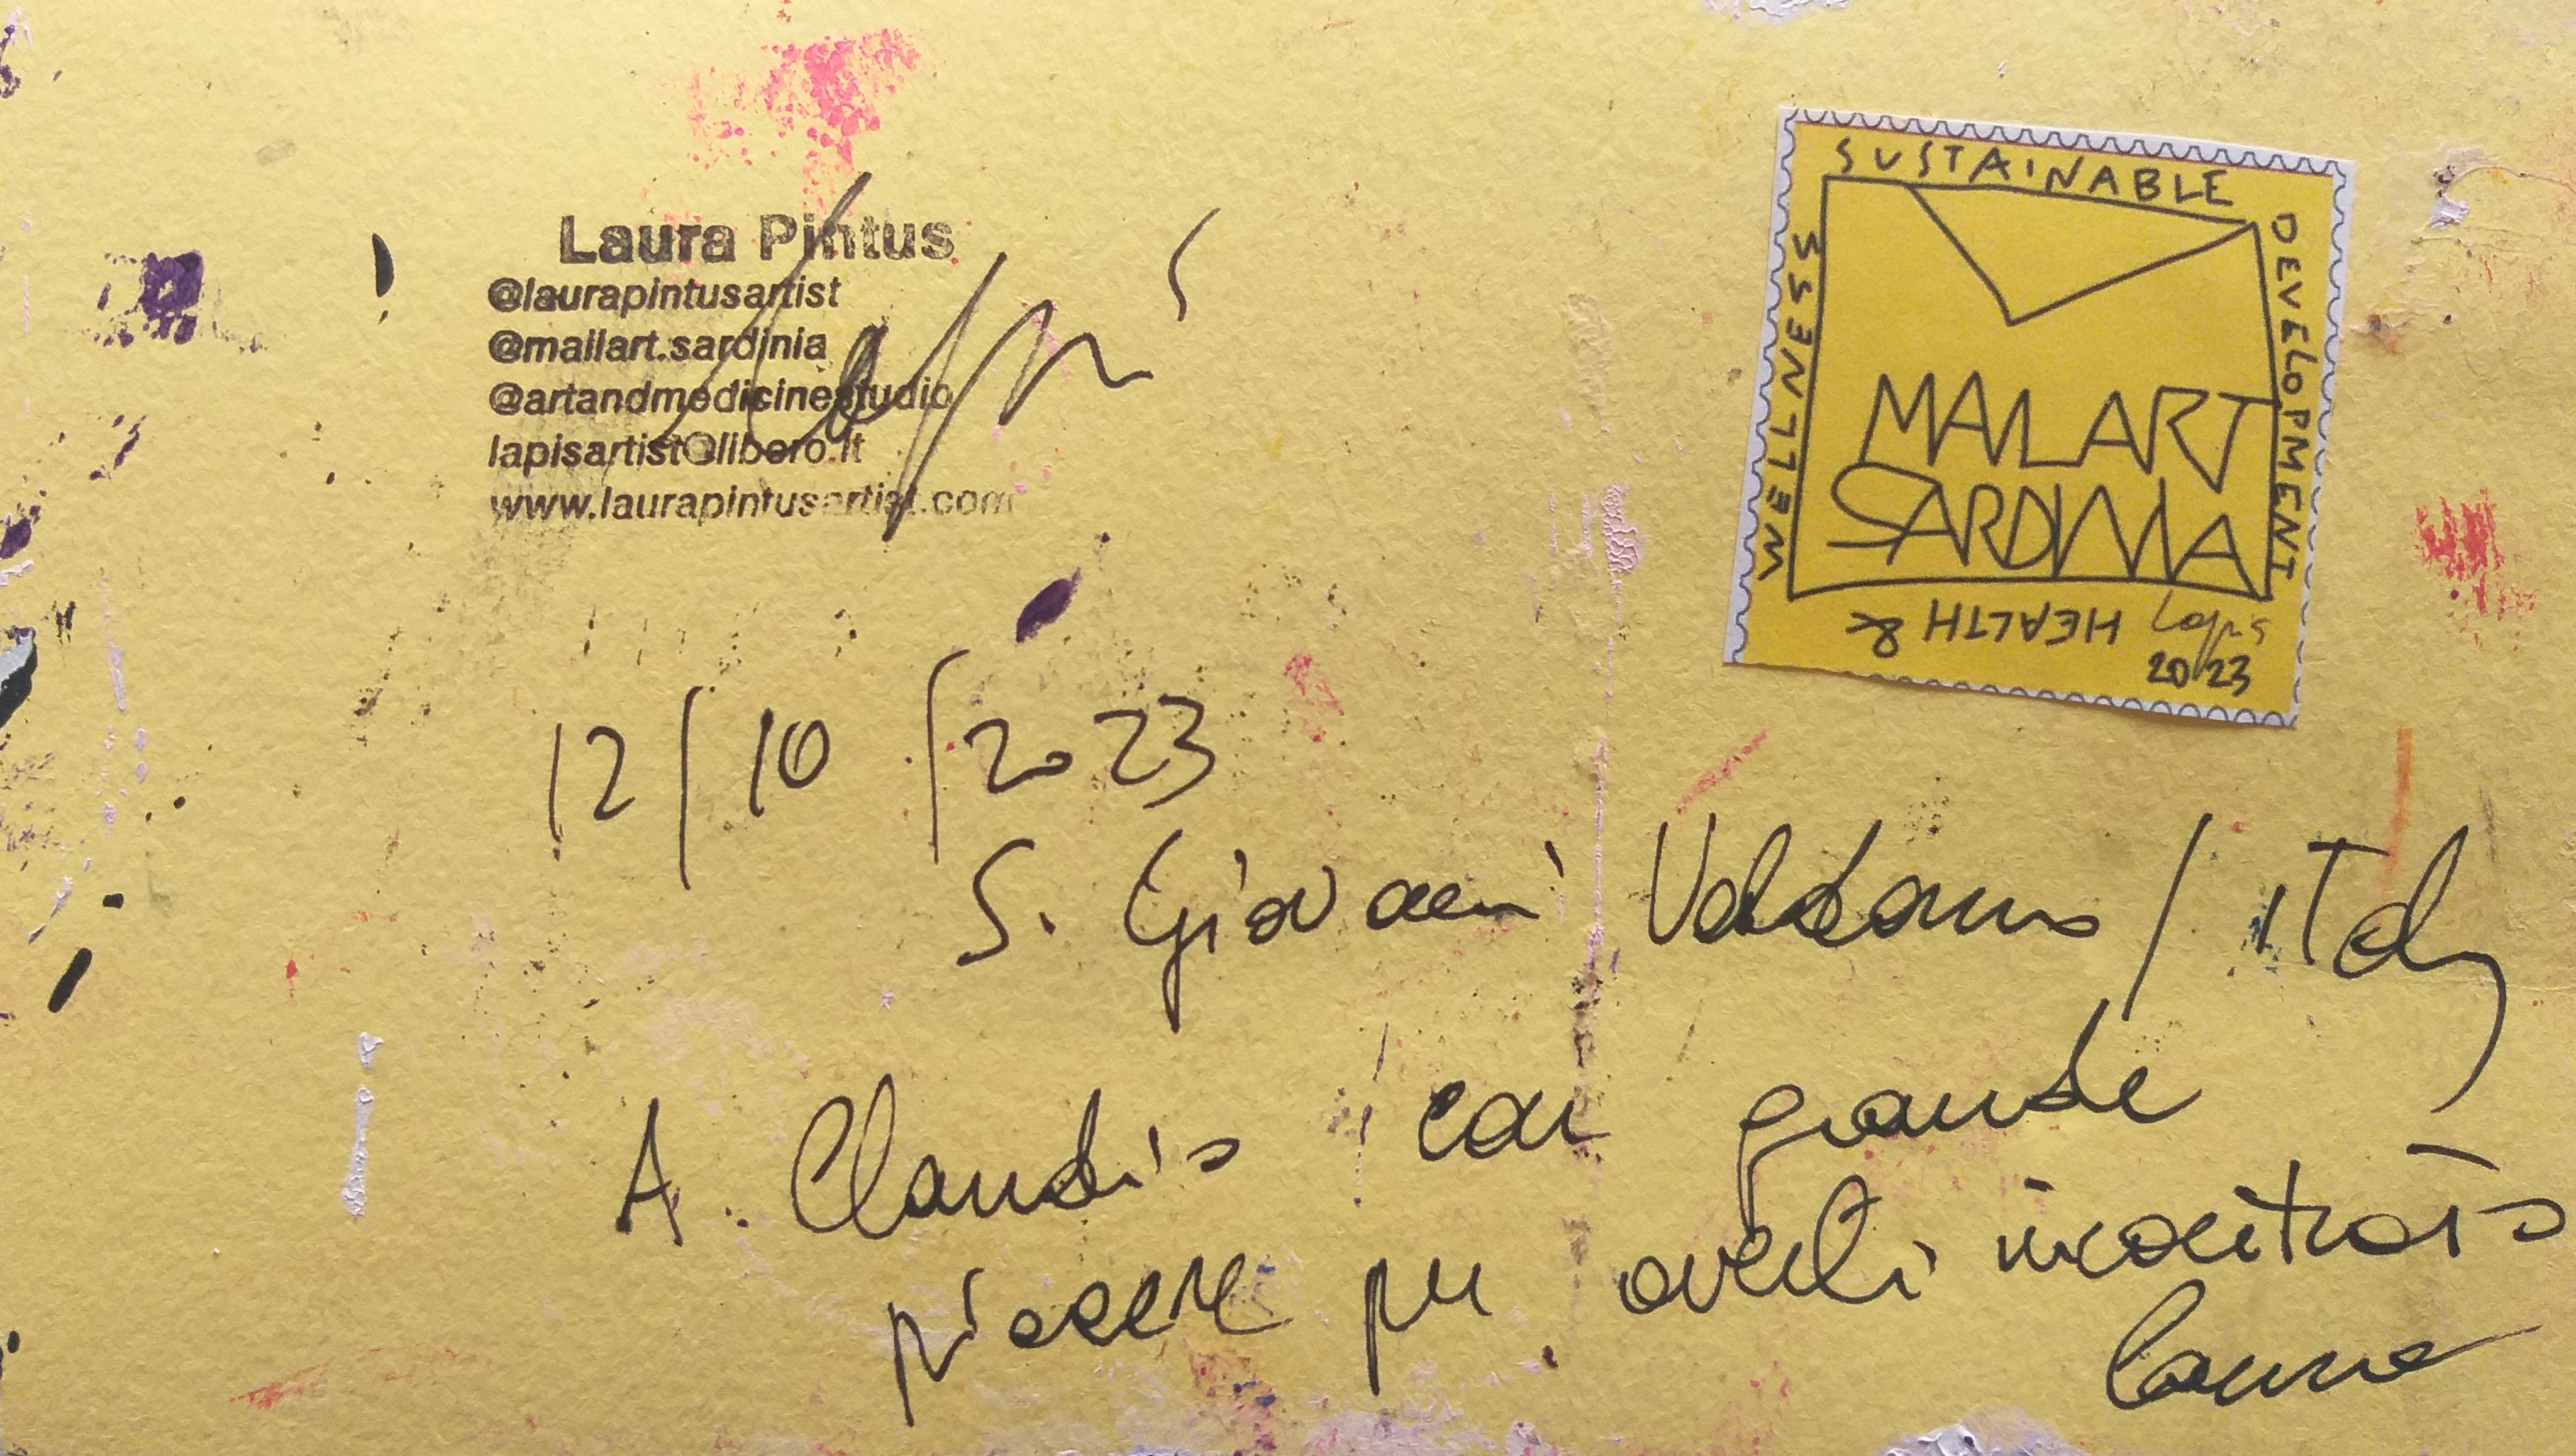 Laura Pintus
@laurapintusartist
@mailart.sardinia
@artandmedicinestudio
lapisartist@libero.it
www.laurapintusartist.com
Lapis
SUSTAINABLE
DEVELOPMENT
HEALTH &
WELLNESS
MAILART
SARDINIA
Lapis
2023
12/10/2023
S. Giovanni Valdarno / ITaly
A Claudio con grande
piacere per averti incontrato
Laura